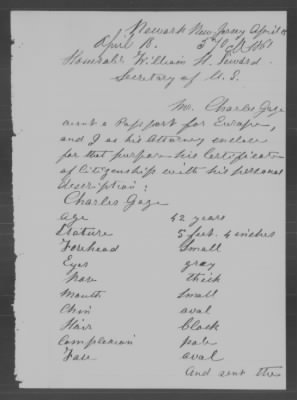 Newark New Jersey April
April 18.
Honorable William H. Seward
Secretary of U. S.
Mr. Charles Gage
want a Passport for Europe,
and I as his Attorney enclose
for that purpose his Certificate
of Citizenship with his personal
description:
Charles Gage
Age 42 years
Stature 5 feet. 4 inches
Forehead Small
Eyes gray
Nose thick
Mouth small
Chin oval
Hair black
Complexion pale
Face oval
And sent the